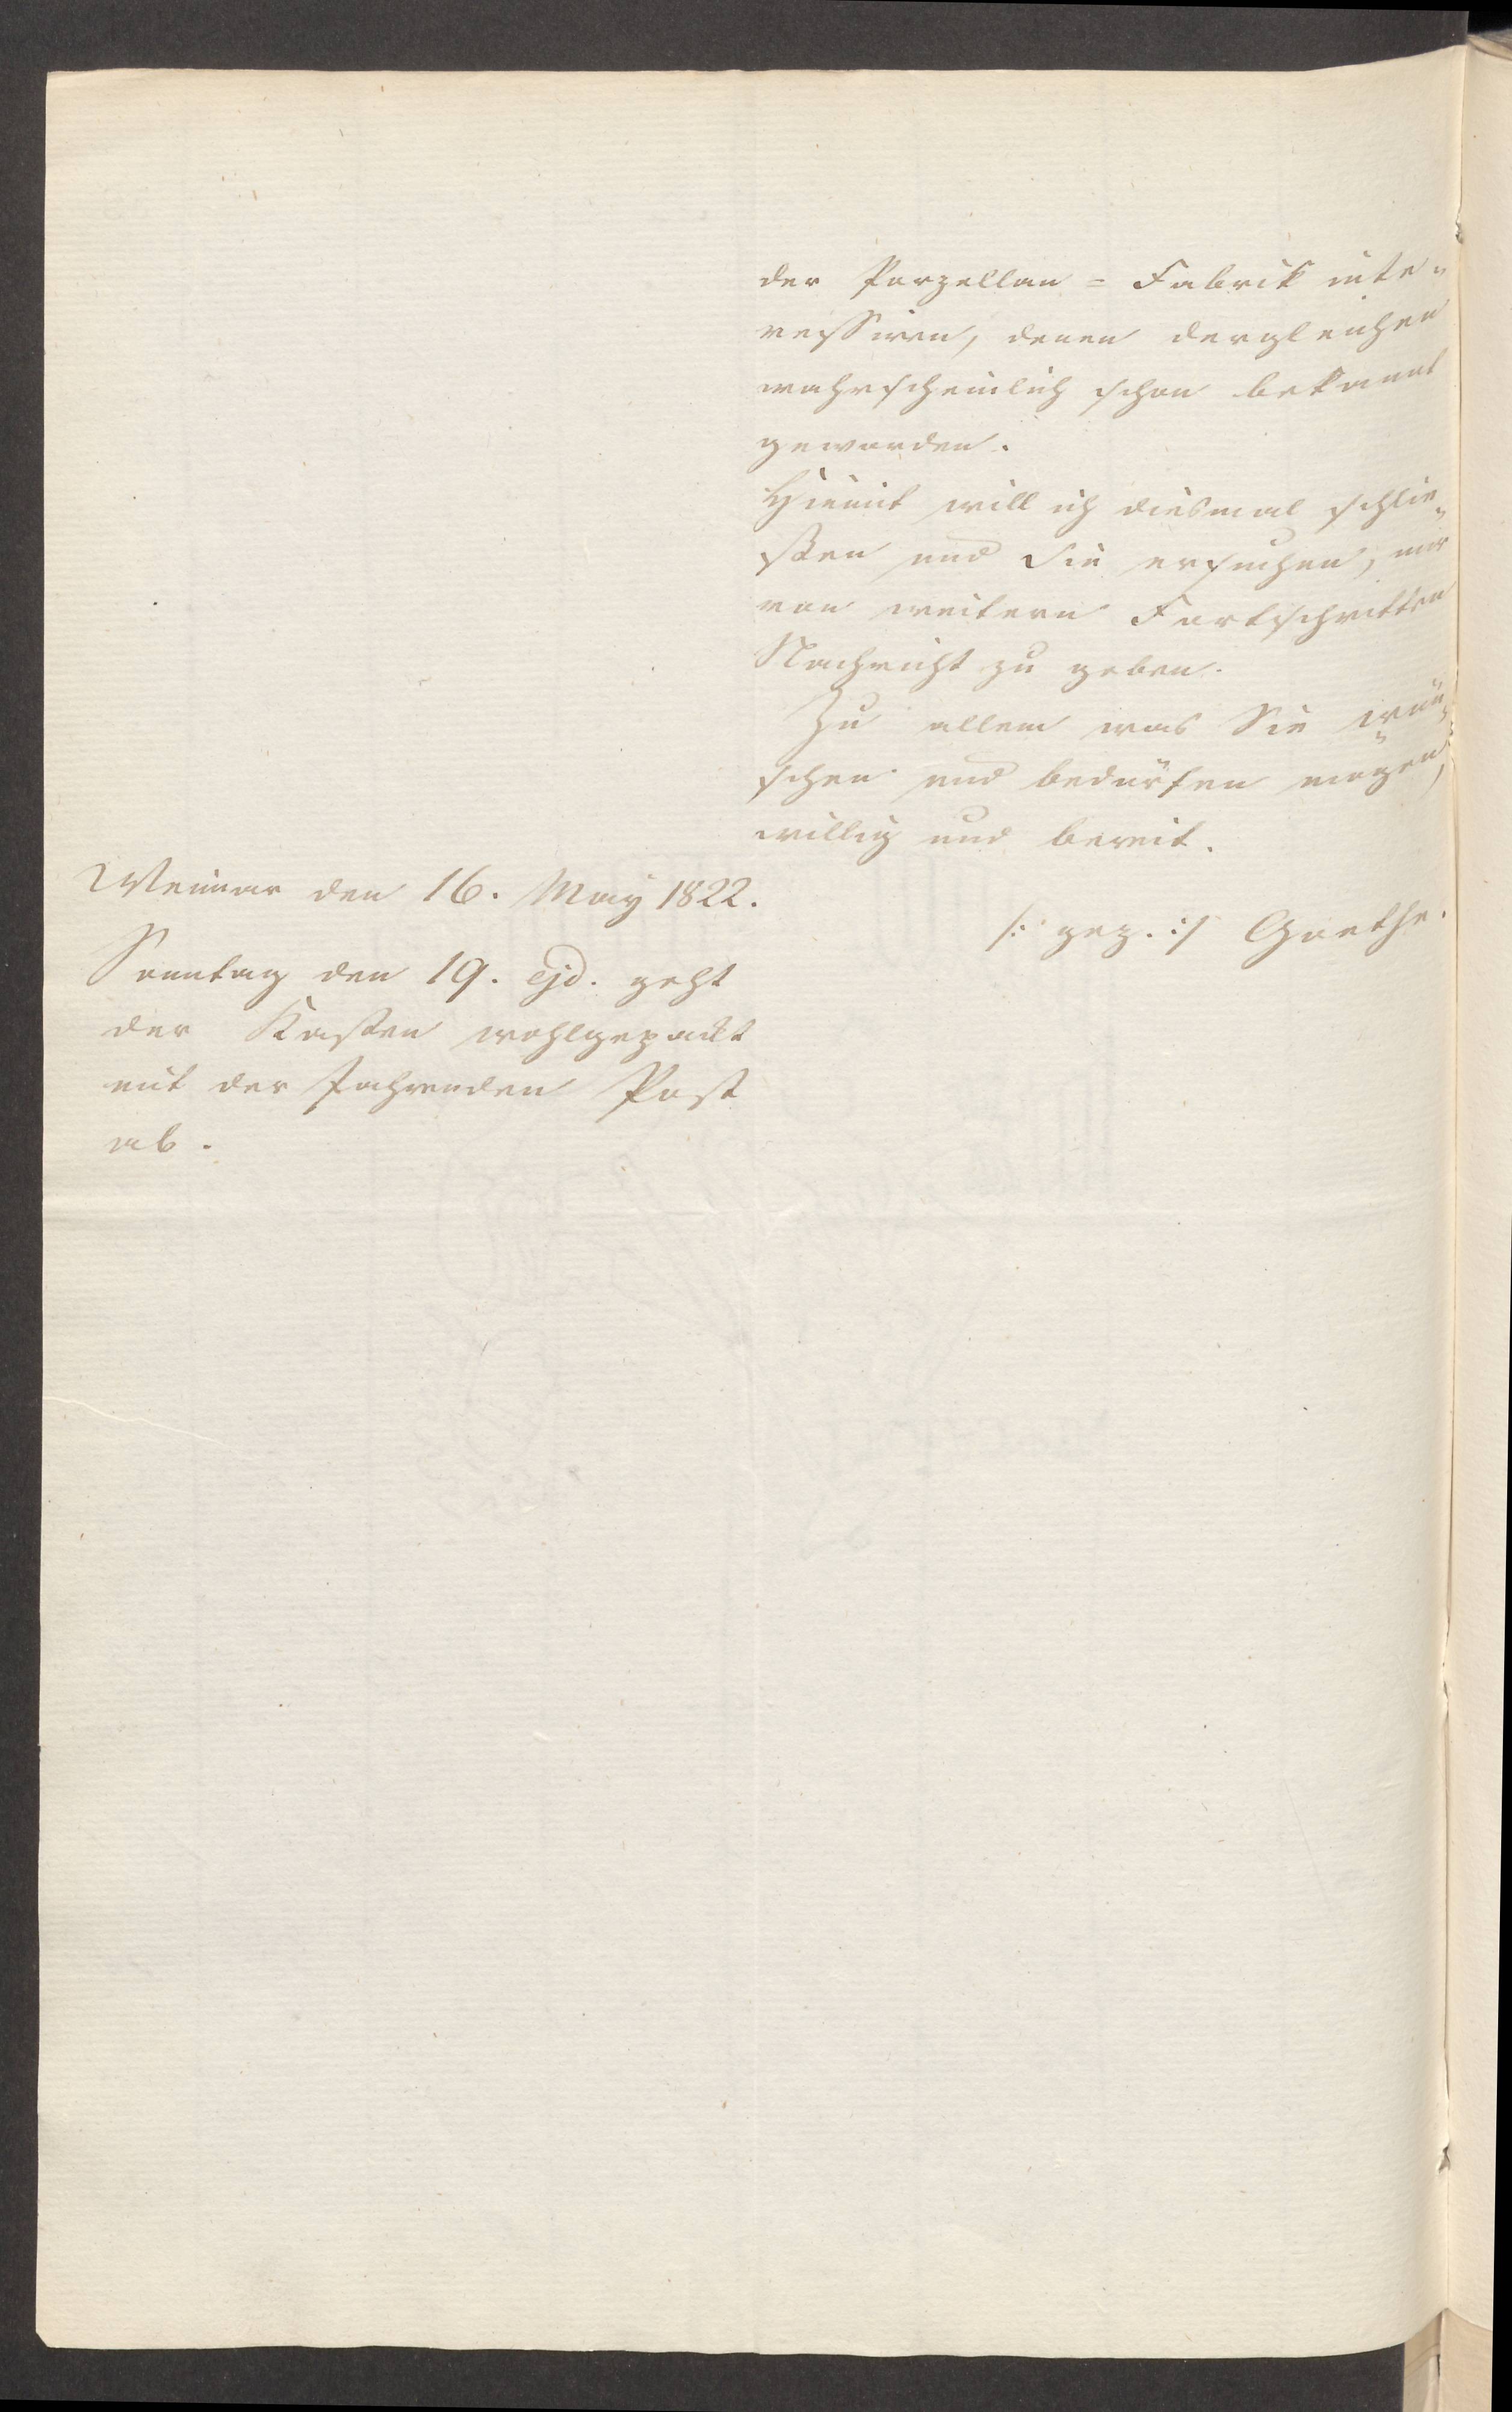 der Porzellan = Fabrik inte¬
ressiren, denen dergleichen
wahrscheinlich schon bekannt
geworden.
Hiemit will ich diesmal schlie¬
ßen und Sie ersuchen, mir
von weitern Fortschritten
Nachricht zu geben.
Zu allem was Sie wün¬
schen und bedürfen mögen,
willig und bereit.
Weimar den 16. May 1822.
/: gez. :/ Goethe.
Sonntag den 19. ejd. geht
der Kasten wohlgepackt
mit der fahrenden Post
ab.